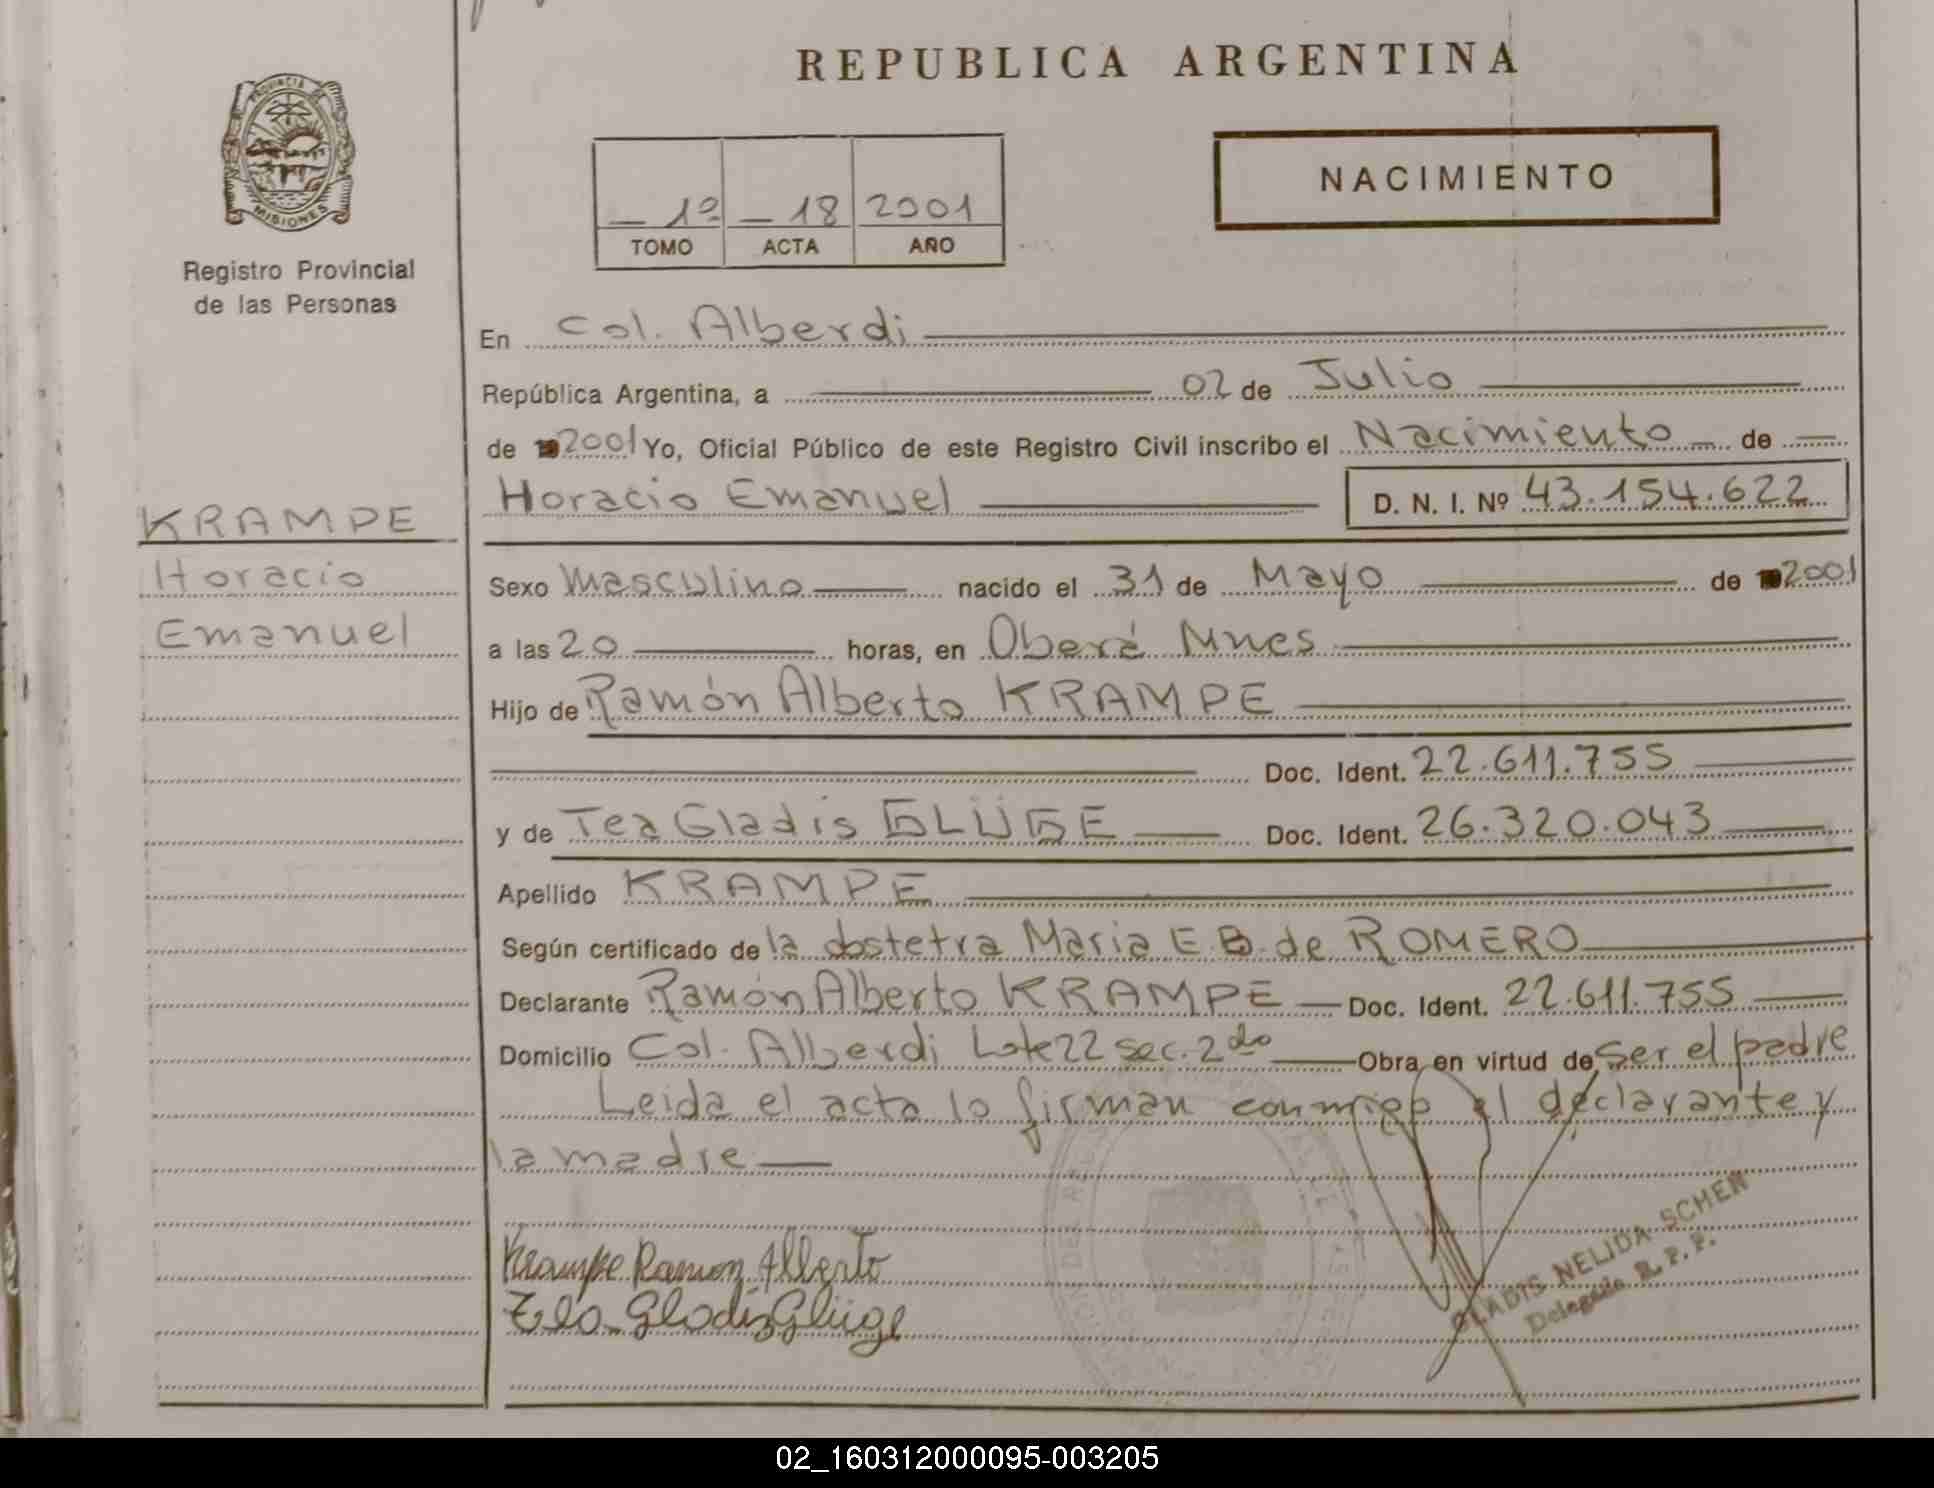 REPUBLICA ARGENTINA
PROVINCIA DE
MISIONES
Registro Provincial
de las Personas
NACIMIENTO
1º 18 2001
TOMO ACTA AÑO
En Col. Alberdi
República Argentina, a 02 de Julio
de 2001 Yo, Oficial Público de este Registro Civil inscribo el Nacimiento de
Horacio Emanuel D. N. I. Nº 43.154.622
KRAMPE
Horacio
Emanuel
Sexo Masculino nacido el 31 de Mayo de 2001
a las 20 horas, en Oberá Mnes
Hijo de Ramón Alberto KRAMPE
Doc. Ident. 22.611.755
y de Tea Gladis GLÜGE Doc. Ident. 26.320.043
Apellido KRAMPE
Según certificado de la obstetra Maria E.B. de ROMERO
Declarante Ramón Alberto KRAMPE Doc. Ident. 22.611.755
Domicilio Col. Alberdi Lote 22 sec. 2do Obra en virtud de ser el padre
Leida el acta lo firman conmigo el declarante y
la madre
Krampe Ramon Alberto
Tea Gladis Glüge
GLADIS NELIDA SCHEN
Delegada R. P. P.
02_160312000095-003205